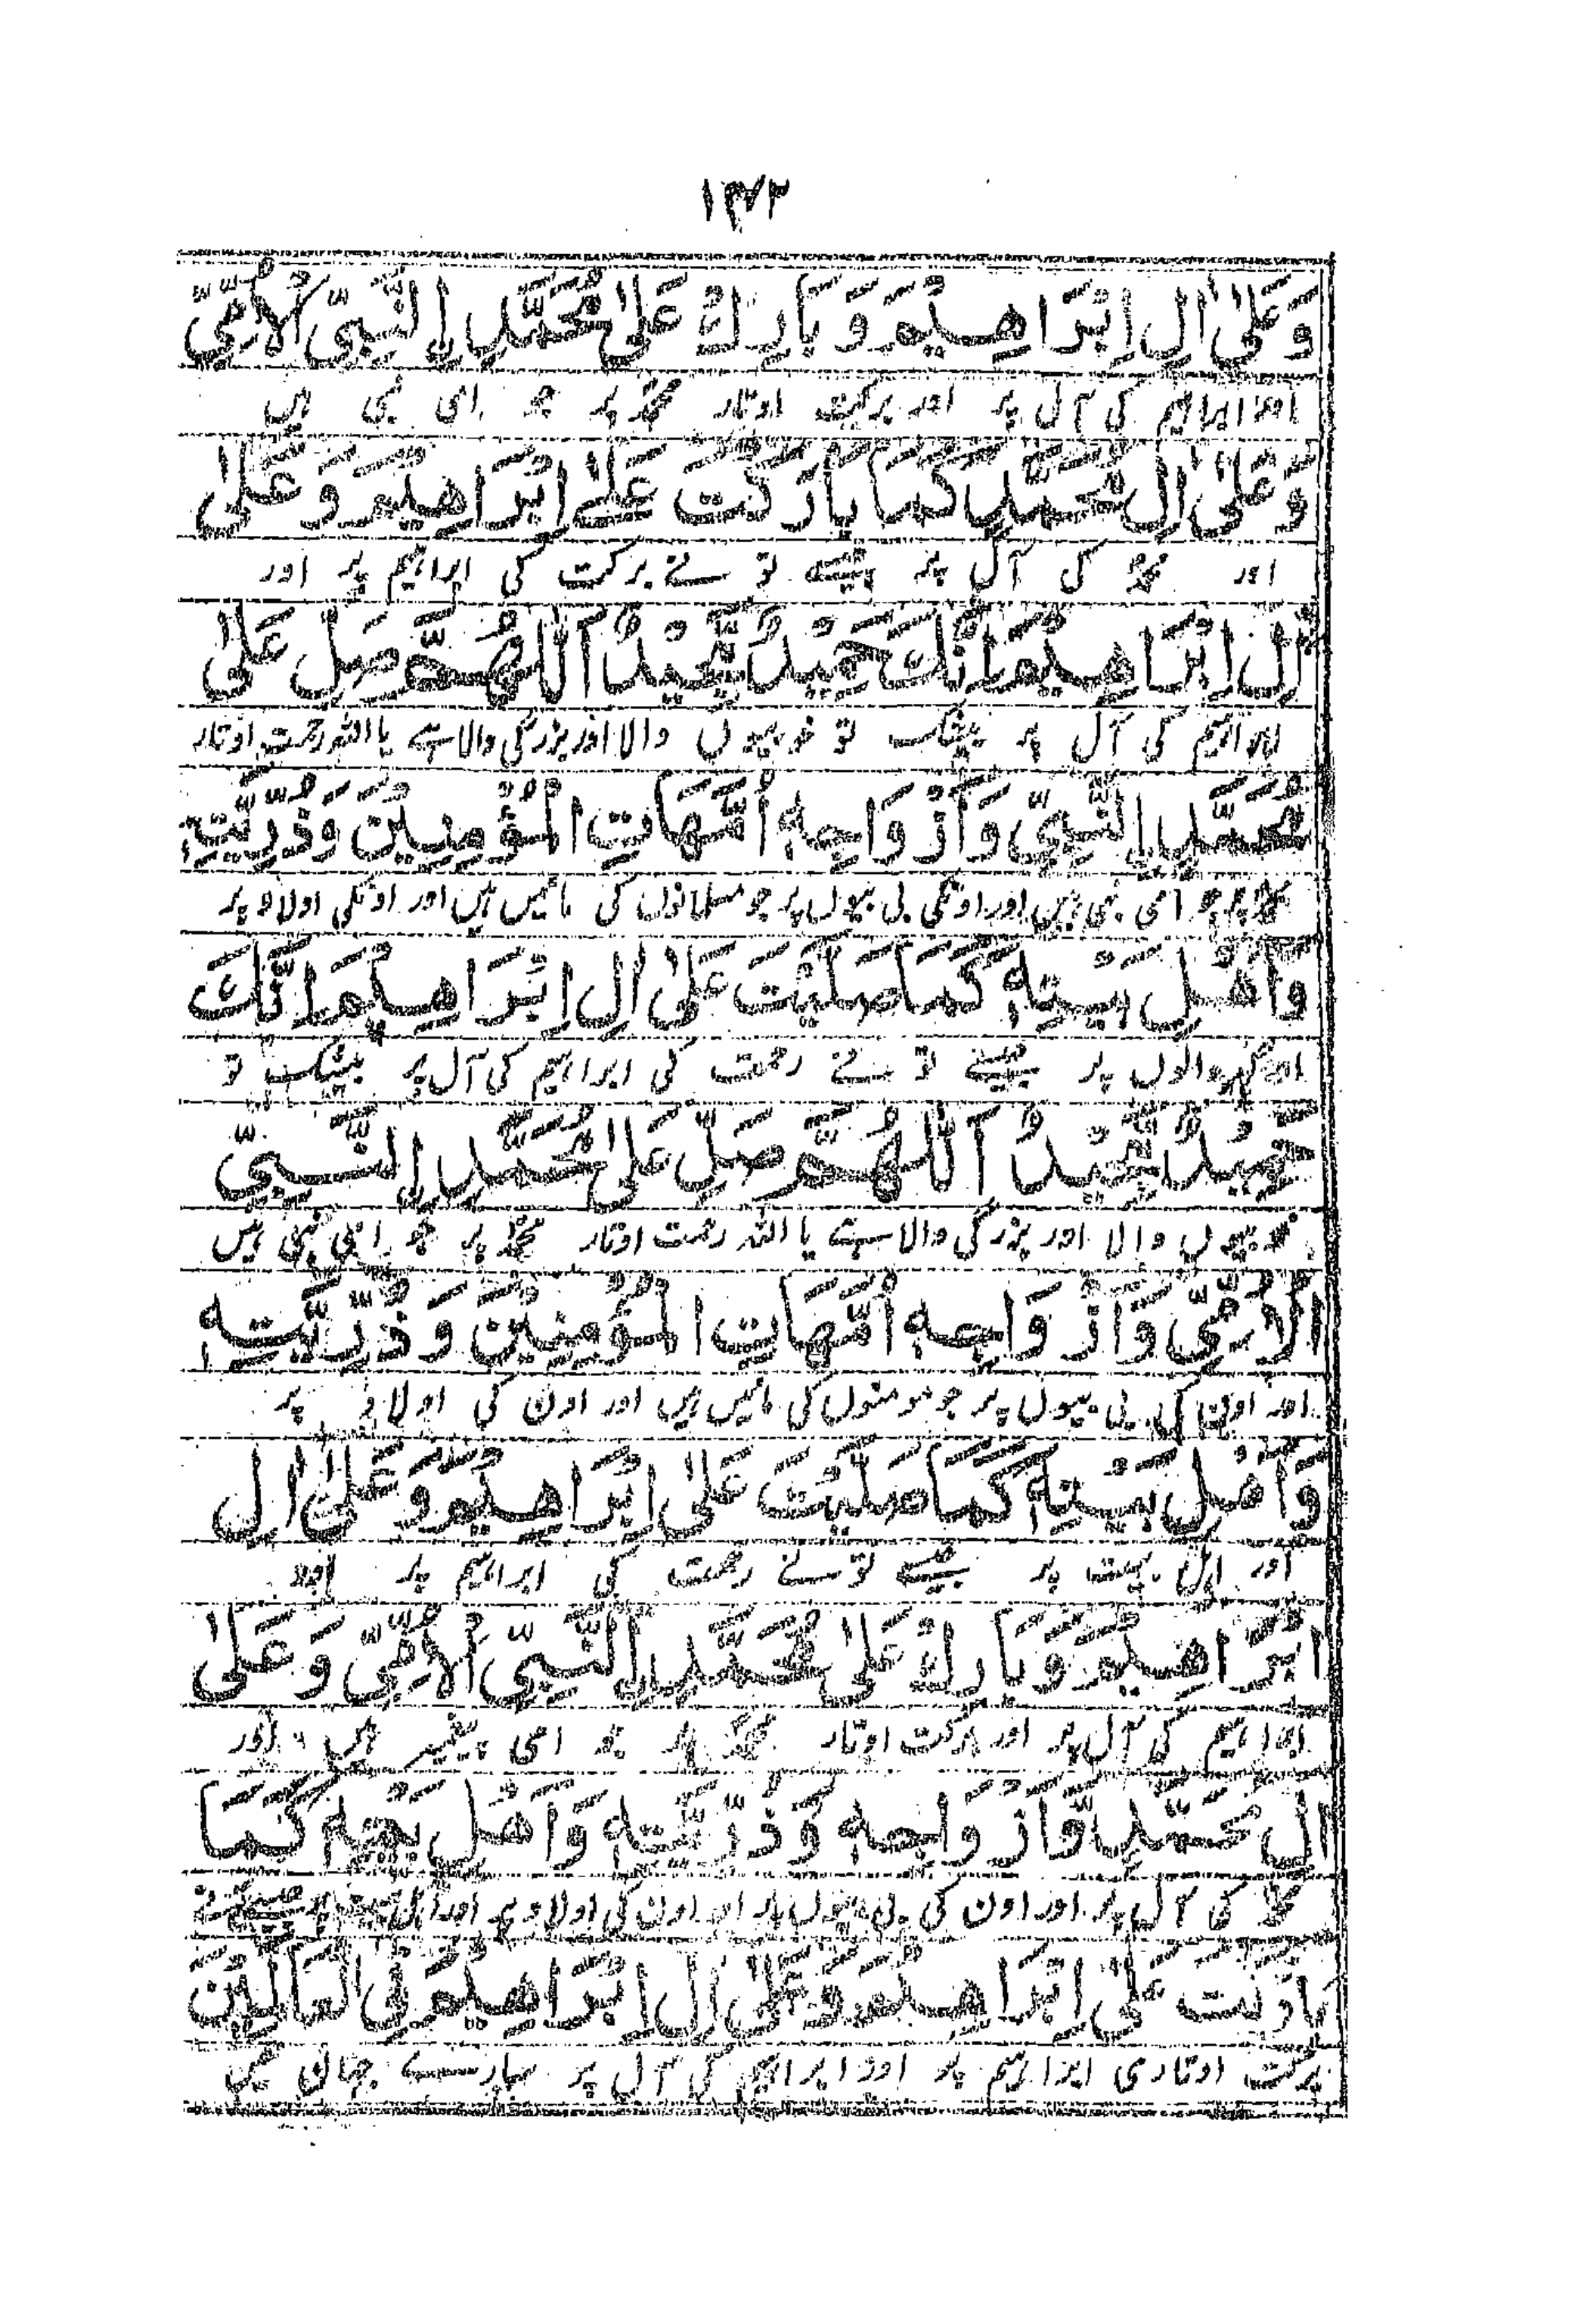 وَعَلٰى اٰلِ اِبْرَاهِيْمَ وَبَارِكْ عَلٰى مُحَمَّدِ اِلنَّبِيِّ الْاُمِّيِّ
اور ابراہیم کی آل پر اور برکت اوتار محمدؐ پر جو امی نبی ہیں
وَعَلٰى اٰلِ مُحَمَّدٍ كَمَا بَارَكْتَ عَلٰى اِبْرَاهِيْمَ وَعَلٰى
اور محمدؐ کی آل پر جیسے تو نے برکت کی ابراہیم پر اور
اٰلِ اِبْرَاهِيْمَ اِنَّكَ حَمِيْدٌ مَّجِيْدٌ اَللّٰهُمَّ صَلِّ عَلٰى
ابراہیم کی آل پر بیشک تو خوبیوں والا اور بزرگی والا ہے یا اللہ رحمت اوتار
مُحَمَّدِ اِلنَّبِيِّ وَاَزْوَاجِهٖ اُمَّهَاتِ الْمُؤْمِنِيْنَ وَذُرِّيَّتِهٖ
محمدؐ پر جو امی نبی ہیں اور اونکی بی بیوں پر جو مسلمانوں کی مائیں ہیں اور اونکی اولاد پر
وَاَهْلِ بَيْتِهٖ كَمَا صَلَّيْتَ عَلٰى اٰلِ اِبْرَاهِيْمَ اِنَّكَ
اور گہر والوں پر جیسے تو نے رحمت کی ابراہیم کی آل پر بیشک تو
حَمِيْدٌ مَّجِيْدٌ اَللّٰهُمَّ صَلِّ عَلٰى مُحَمَّدِ اِلنَّبِيِّ
خوبیوں والا اور بزرگی والا ہے یا اللہ رحمت اوتار محمدؐ پر جو امی نبی ہیں
الْاُمِّيِّ وَاَزْوَاجِهٖ اُمَّهَاتِ الْمُؤْمِنِيْنَ وَذُرِّيَّتِهٖ
اور اون کی بی بیوں پر جو مومنوں کی مائیں ہیں اور اون کی اولاد پر
وَاَهْلِ بَيْتِهٖ كَمَا صَلَّيْتَ عَلٰى اِبْرَاهِيْمَ وَعَلٰى اٰلِ
اور اہل بیت پر جیسے تو نے رحمت کی ابراہیم پر اور
اِبْرَاهِيْمَ وَبَارِكْ عَلٰى مُحَمَّدِ اِلنَّبِيِّ الْاُمِّيِّ وَعَلٰى
ابراہیم کی آل پر اور برکت اوتار محمدؐ پر جو امی پیغمبر ہیں اور
اٰلِ مُحَمَّدٍ وَّاَزْوَاجِهٖ وَذُرِّيَّتِهٖ وَاَهْلِ بَيْتِهٖ كَمَا
محمدؐ کی آل پر اور اون کی بی بیوں پر اور اون کی اولاد پر اور اہل بیت پر جیسے تو نے
بَارَكْتَ عَلٰى اِبْرَاهِيْمَ وَعَلٰى اٰلِ اِبْرَاهِيْمَ فِي الْعَالَمِيْنَ
برکت اوتاری ابراہیم پر اور ابراہیم کی آل پر سارے جہان میں